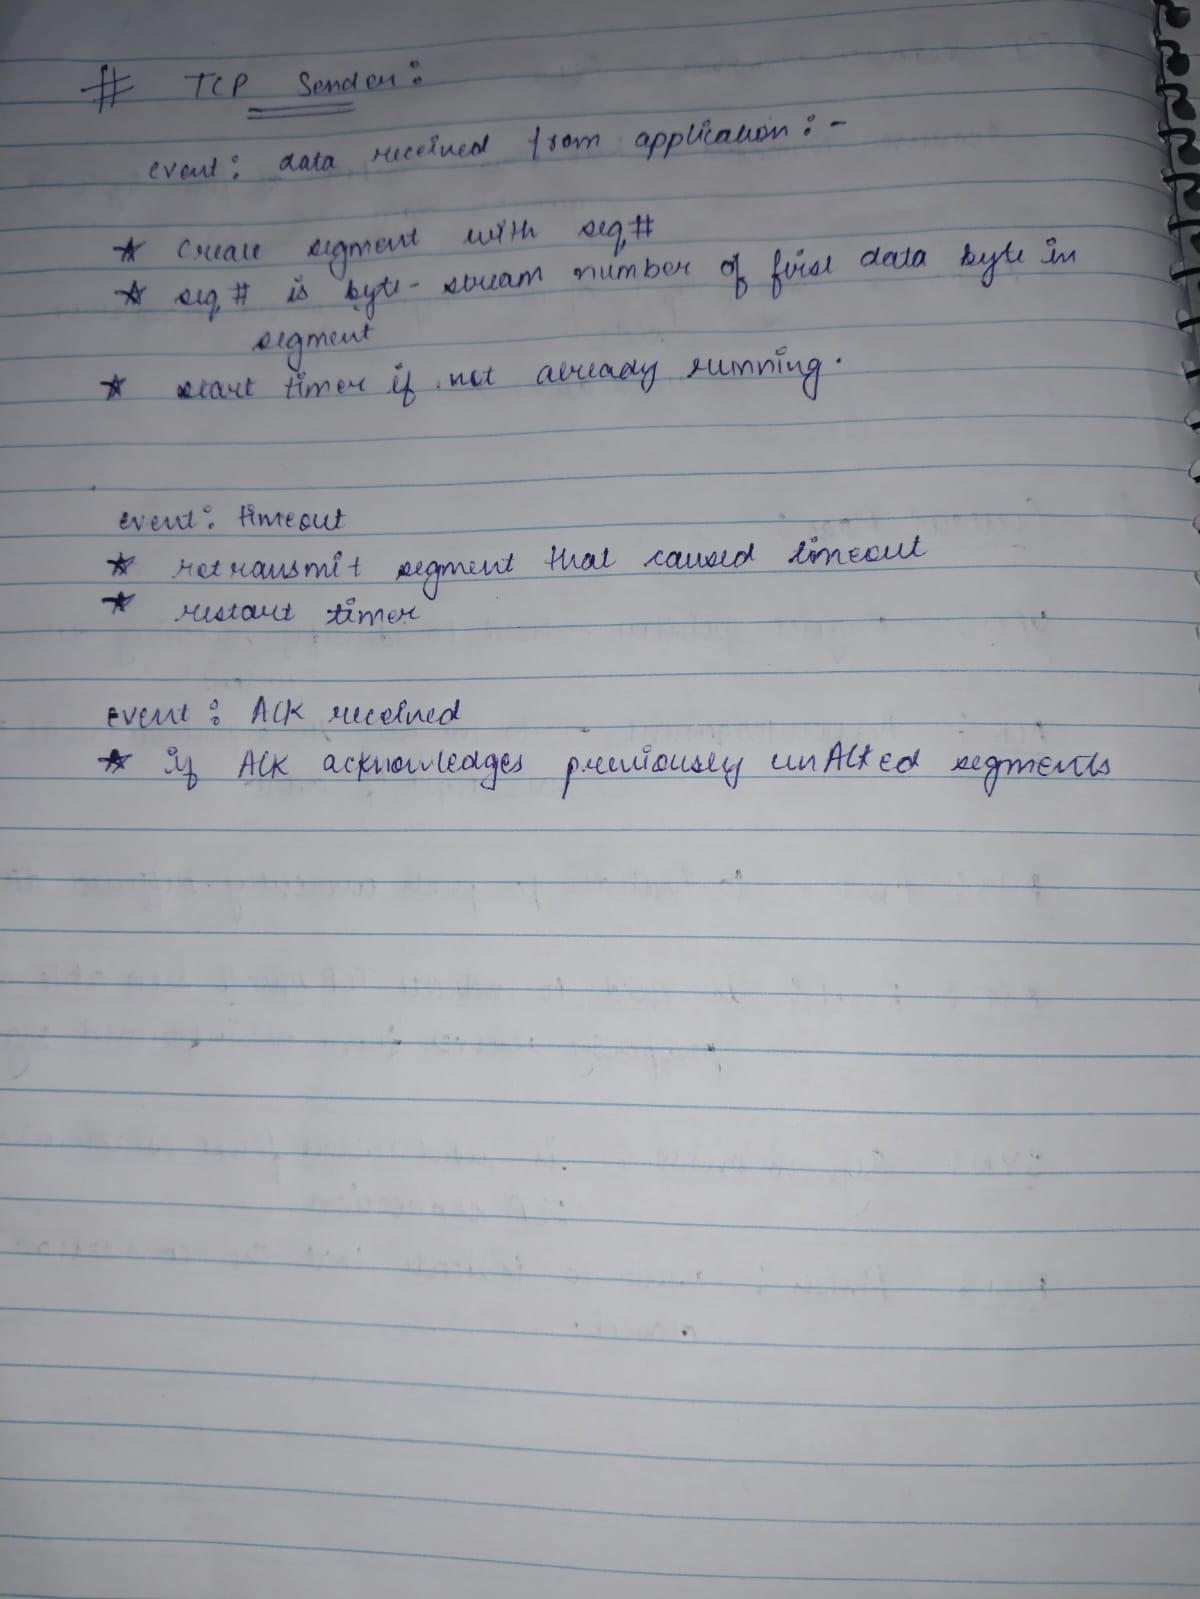 # TCP Sender:
event: data received from application:-
★ create segment with seq#
★ seq # is byte-stream number of first data byte in
segment
★ start timer if not already running.
event: timeout
★ retransmit segment that caused timeout
★ restart timer
event: ACK received
★ if ACK acknowledges previously unACKed segments